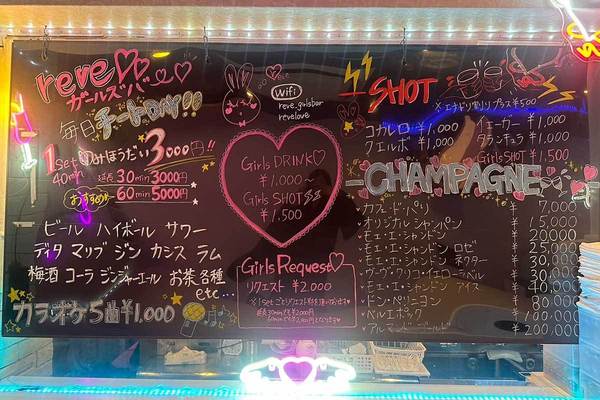 reve♡♡
ガールズバー♡
毎日チートDAY!!
1set 飲みほうだい 3000円!!
40min
延長 30min 3000円
おすすめ 60min 5000円
ビール ハイボール サワー
ディタ マリブ ジン カシス ラム
梅酒 コーラ ジンジャーエール お茶各種
etc...
カラオケ5曲¥1,000
Wifi
reve.girlsbar
revelove
Girls DRINK♡
¥1.000~
Girls SHOT
¥1.500
Girls Request♡
リクエスト ¥2.000
SHOT
※エナドリ割りプラス¥500
コカレロ ¥1,000
クエルボ ¥1,000
イエーガー ¥1,000
タランチュラ ¥1,000
Girls SHOT ¥1,500
CHAMPAGNE
カフェ・ド・パリ ¥ 7,000
オリジナルシャンパン ¥ 15,000
モエ・エ・シャンドン ¥ 20000
モエ・エ・シャンドン ロゼ ¥
モエ・エ・シャンドン ネクター ¥
ヴーヴ・クリコ・イエローラベル ¥
モエ・エ・シャンドン アイス ¥
ドン・ペリニヨン ¥
ベル・エポック ¥
アルマンド ¥ 200.000